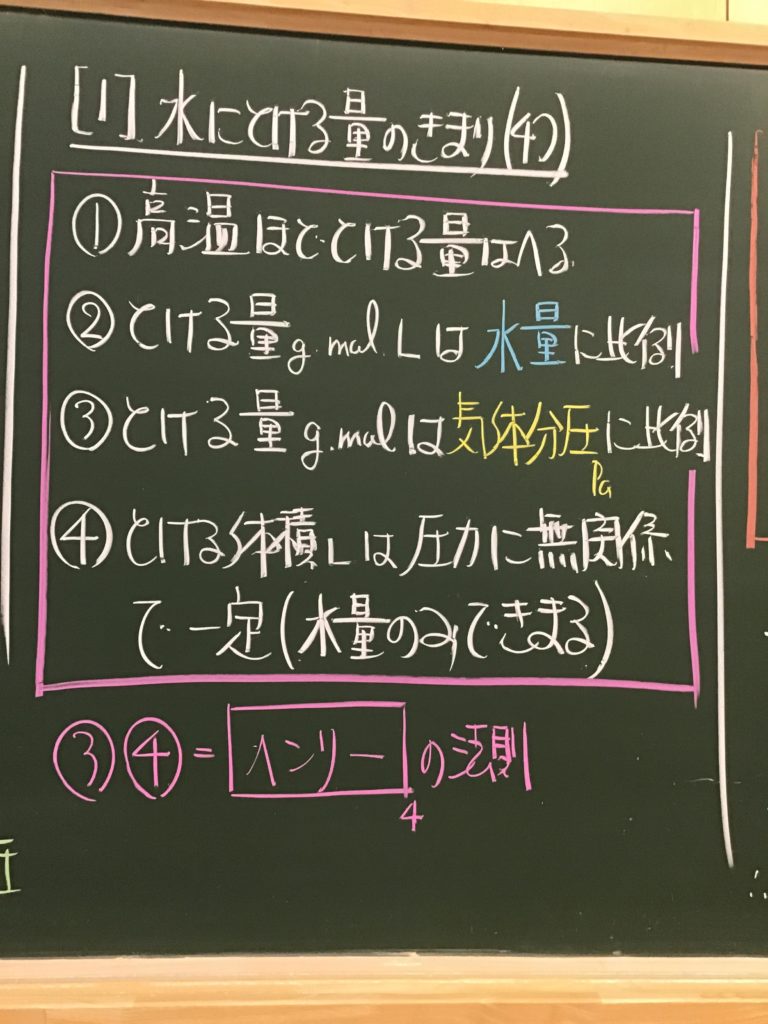 [1] 水にとける量のきまり(4つ)
①高温ほどとける量はへる
②とける量g.mol.Lは水量に比例
③とける量g.molは気体分圧に比例
Pa
④とける体積Lは圧力に無関係
で一定(水量のみできまる)
③④=ヘンリーの法則
4
圧
∴